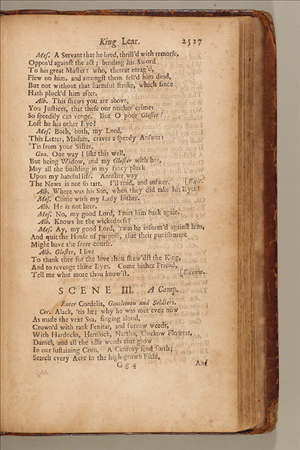 King Lear. 2517
Mes. A Servant that he bred, thrill'd with remorse,
Oppos'd against the act; bending his Sword
To his great Master: who, thereat enrag'd,
Flew on him, and amongst them fell'd him dead,
But not without that harmful stroke, which since
Hath pluck'd him after.
Alb. This shews you are above,
You Justices, that these our neather crimes
So speedily can venge. But O poor Gloster!
Lost he his other Eye?
Mes. Both, both, my Lord.
This Letter, Madam, craves a speedy Answer:
'Tis from your Sister.
Gon. One way I like this well,
But being Widow, and my Gloster with her,
May all the building in my fancy pluck
Upon my hateful life. Another way
The News is not so tart. I'll read, and answer. [Exit.
Alb. Where was his Son, when they did take his Eyes?
Mes. Come with my Lady hither.
Alb. He is not here.
Mes. No, my good Lord, I met him back again.
Alb. Knows he the wickedness?
Mes. Ay, my good Lord, 'twas he inform'd against him,
And quit the House of purpose, that their punishment
Might have the freer course.
Alb. Gloster, I live
To thank thee for the love thou shew'dst the King,
And to revenge thine Eyes. Come hither Friend,
Tell me what more thou know'st. [Exeunt.
SCENE III. A Camp.
Enter Cordelia, Gentlemen and Soldiers.
Cor. Alack, 'tis he; why he was met even now
As made the vext Sea, singing aloud,
Crown'd with rank Fenitar, and furrow weeds,
With Hardocks, Hemlock, Nettles, Cuckow Flowers,
Darnel, and all the idle weeds that grow
In our sustaining Corn. A Century send forth;
Search every Acre in the high-grown Field,
G g 4 And